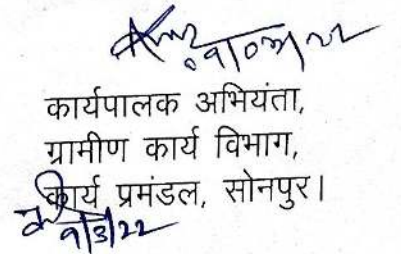 ०१/०३/२२
कार्यपालक अभियंता,
ग्रामीण कार्य विभाग,
कार्य प्रमंडल, सोनपुर।
१/३/२२